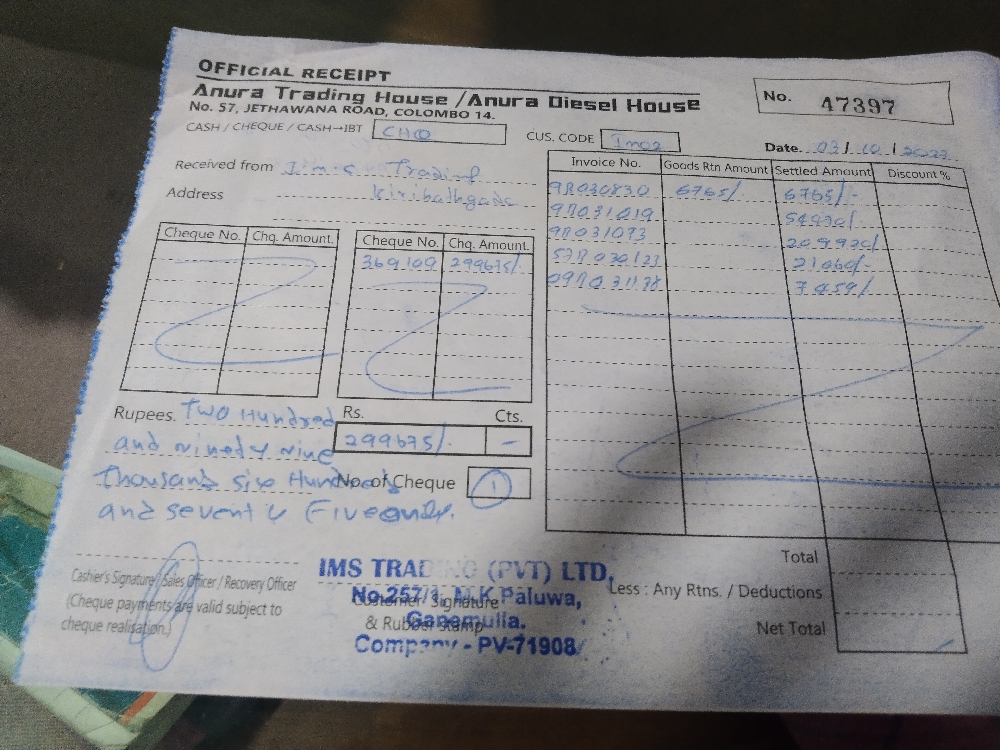 OFFICIAL RECEIPT
Anura Trading House / Anura Diesel House
No. 57, JETHAWANA ROAD, COLOMBO 14.
No. 47397
CASH / CHEQUE / CASH→IBT CHQ
CUS. CODE Im02
Date 03/10/2023
Received from I.m.s. Trading
Address Kiribathgoda
Cheque No. Chq. Amount.
Cheque No. Chq. Amount.
369109 299675/-
Invoice No. Goods Rtn Amount Settled Amount Discount %
98030830 6765/- 6765/-
21060/-
7459/
Rupees. Two Hundred
and Ninedy Nine
Thousand six Hundred
and seventy Five only.
Rs. Cts.
299675/- –
No. of Cheque 1
Cashier's Signature / Sales Officer / Recovery Officer
(Cheque payments are valid subject to
cheque realisation.)
Customer Signature
& Rubber Stamp
IMS TRADING (PVT) LTD,
No.257/1, M.K Paluwa,
Ganemulla.
Company - PV-71908
Total
Less : Any Rtns. / Deductions
Net Total